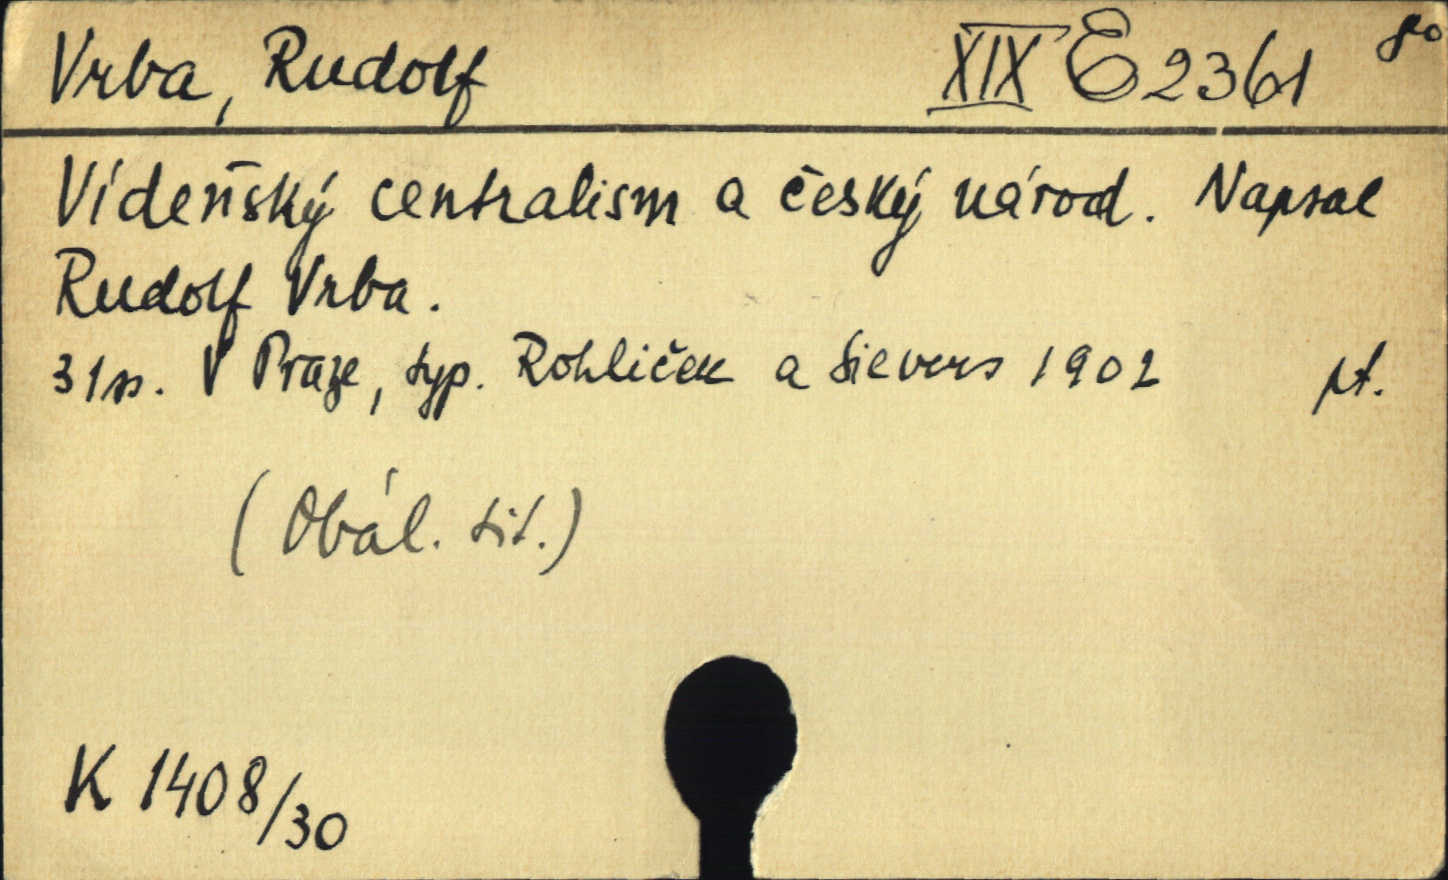 Vrba, Rudolf XIX E 2361 8°
Vídeňský centralism a český národ. Napsal
Rudolf Vrba.
31 s. V Praze, typ. Rohlíček a Sievers 1902 pt.
(Obál. tit.)
K 1408/30